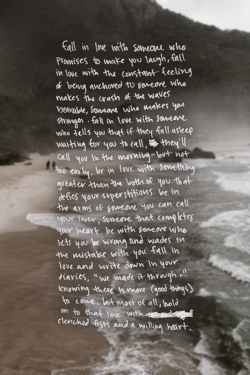 fall in love with someone who
promises to make you laugh, fall
in love with the constant feeling
of being anchored to someone who
makes the crash of the waves
bearable, someone who makes you
stronger. fall in love with someone
who tells you that if they fall asleep
waiting for you to call, they'll
call you in the morning - but not
too early. be in love with something
greater than the both of you that
defies your superstitions. be in
the arms of someone you can call
your lover, someone that completes
your heart. be with someone who
lets you be wrong and wades in
the mistake with you. fall in
love and write down in your
diaries, "we made it through,"
knowing there is more (good things)
to come. but most of all, hold
on to that love with
clenched fists and a willing heart.